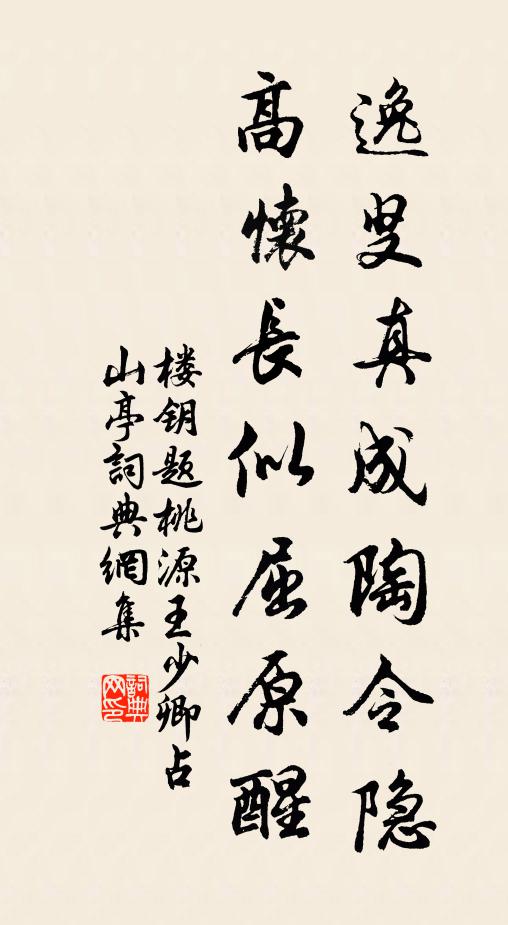 逸叟真成陶令隐
高懷長似屈原醒
楼钥题桃源王少卿占
山亭詞典網集
詞典
网印